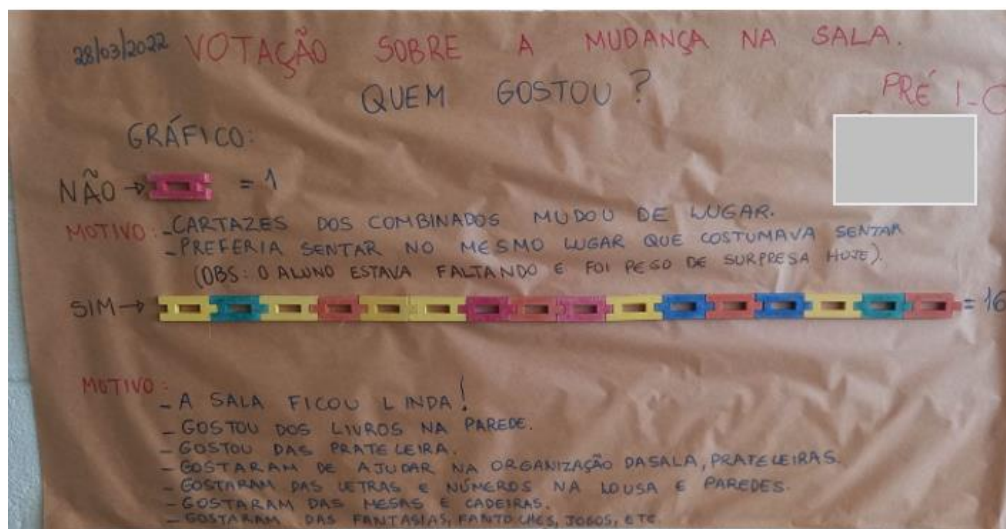 28/03/2022 VOTAÇÃO SOBRE A MUDANÇA NA SALA.
QUEM GOSTOU?
PRÉ I-C
GRÁFICO:
NÃO → = 1
MOTIVO: - CARTAZES DOS COMBINADOS MUDOU DE LUGAR.
- PREFERIA SENTAR NO MESMO LUGAR QUE COSTUMAVA SENTAR
(OBS: O ALUNO ESTAVA FALTANDO E FOI PEGO DE SURPRESA HOJE).
SIM → = 16
MOTIVO:
- A SALA FICOU LINDA!
- GOSTOU DOS LIVROS NA PAREDE.
- GOSTOU DAS PRATELEIRA.
- GOSTARAM DE AJUDAR NA ORGANIZAÇÃO DA SALA, PRATELEIRAS.
- GOSTARAM DAS LETRAS E NÚMEROS NA LOUSA E PAREDES.
- GOSTARAM DAS MESAS E CADEIRAS.
- GOSTARAM DAS FANTASIAS, FANTOCHES, JOGOS, ETC